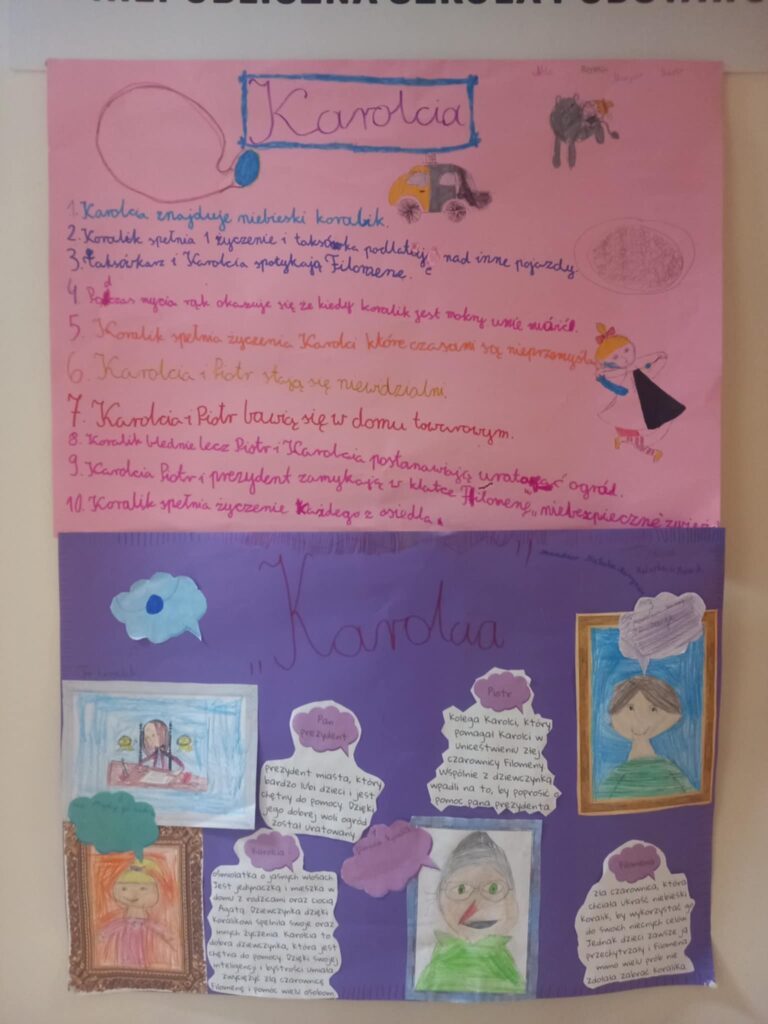 NIEPUBLICZNA SZKOŁA PODSTAWO
Karolcia
1. Karolcia znajduje niebieski koralik.
2. Koralik spełnia 1 życzenie i taksówka podlatuje nad inne pojazdy.
3. taksówkarz i Karolcia spotykają Filomenę.
4 Podczas mycia rąk okazuje się że kiedy koralik jest mokry umie mówić.
5. Koralik spełnia życzenia Karolci które czasami są nieprzemyśla
6. Karolcia i Piotr stają się niewidzialni.
7. Karolcia i Piotr bawią się w domu towarowym.
8. Koralik blednie lecz Piotr i Karolcia postanawiają uratować ogród.
9. Karolcia Piotr i prezydent zamykają w klatce Filomenę „niebezpieczne
10. Koralik spełnia życzenie każdego z osiedla.
„Karolcia
Pan
prezydent
prezydent miasta, który
bardzo lubi dzieci i jest
chętny do pomocy. Dzięki
jego dobrej woli ogród
został uratowany
Piotr
kolega Karolci, który
pomagał Karolci w
unicestwieniu złej
czarownicy Filomeny
Wspólnie z dziewczynką
wpadli na to, by poprosić o
pomoc pana prezydenta
Karolcia
ośmiolatka o jasnych włosach.
Jest jedynaczką i mieszka w
domu z rodzicami oraz ciocią
Agatą. Dziewczynka dzięki
koralikowi spełniła swoje oraz
innych życzenia. Karolcia to
dobra dziewczynka, która jest
chętna do pomocy. Dzięki swojej
inteligencji i bystrości umiała
zwyciężyć złą czarownicę
Filomenę i pomóc wielu osobom
Filomena
zła czarownica, która
chciała ukraść niebieski
koralik, by wykorzystać go
do swoich niecnych celów
Jednak dzieci zawsze ją
przechytrzały i Filomena
mimo wielu prób nie
zdołała zabrać koralika.